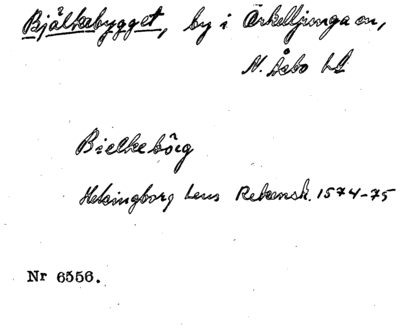 Bjälkabygget, by i Örkelljunga sn,
N. Åsbo hd
Bielkebôrg
Helsingborg Lens Rekensk. 1574-75
Nr 6556.